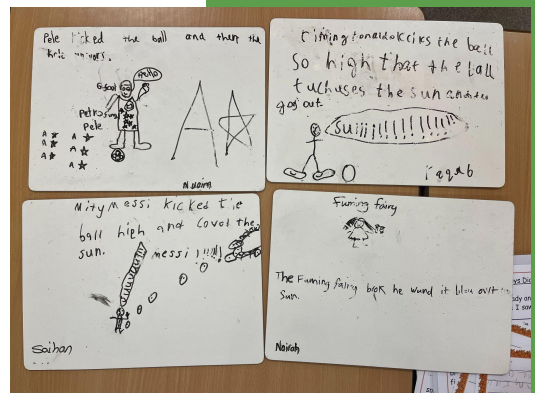 Pele kicked the ball and then the
Hello
Pele
A A
A A
A A
A
Nuaim
timing ronaldo kciks the ball
so high that the ball
tuchuses the sun and the
gos out
suiiii!!!!!!!!!!
iaqab
Mity messi kicked the
ball high and covd the
sun. messi !!!!!
Saihan
Fuming fairy
The Fuming fairy brok he wund it blou out the
Sun.
Nairah